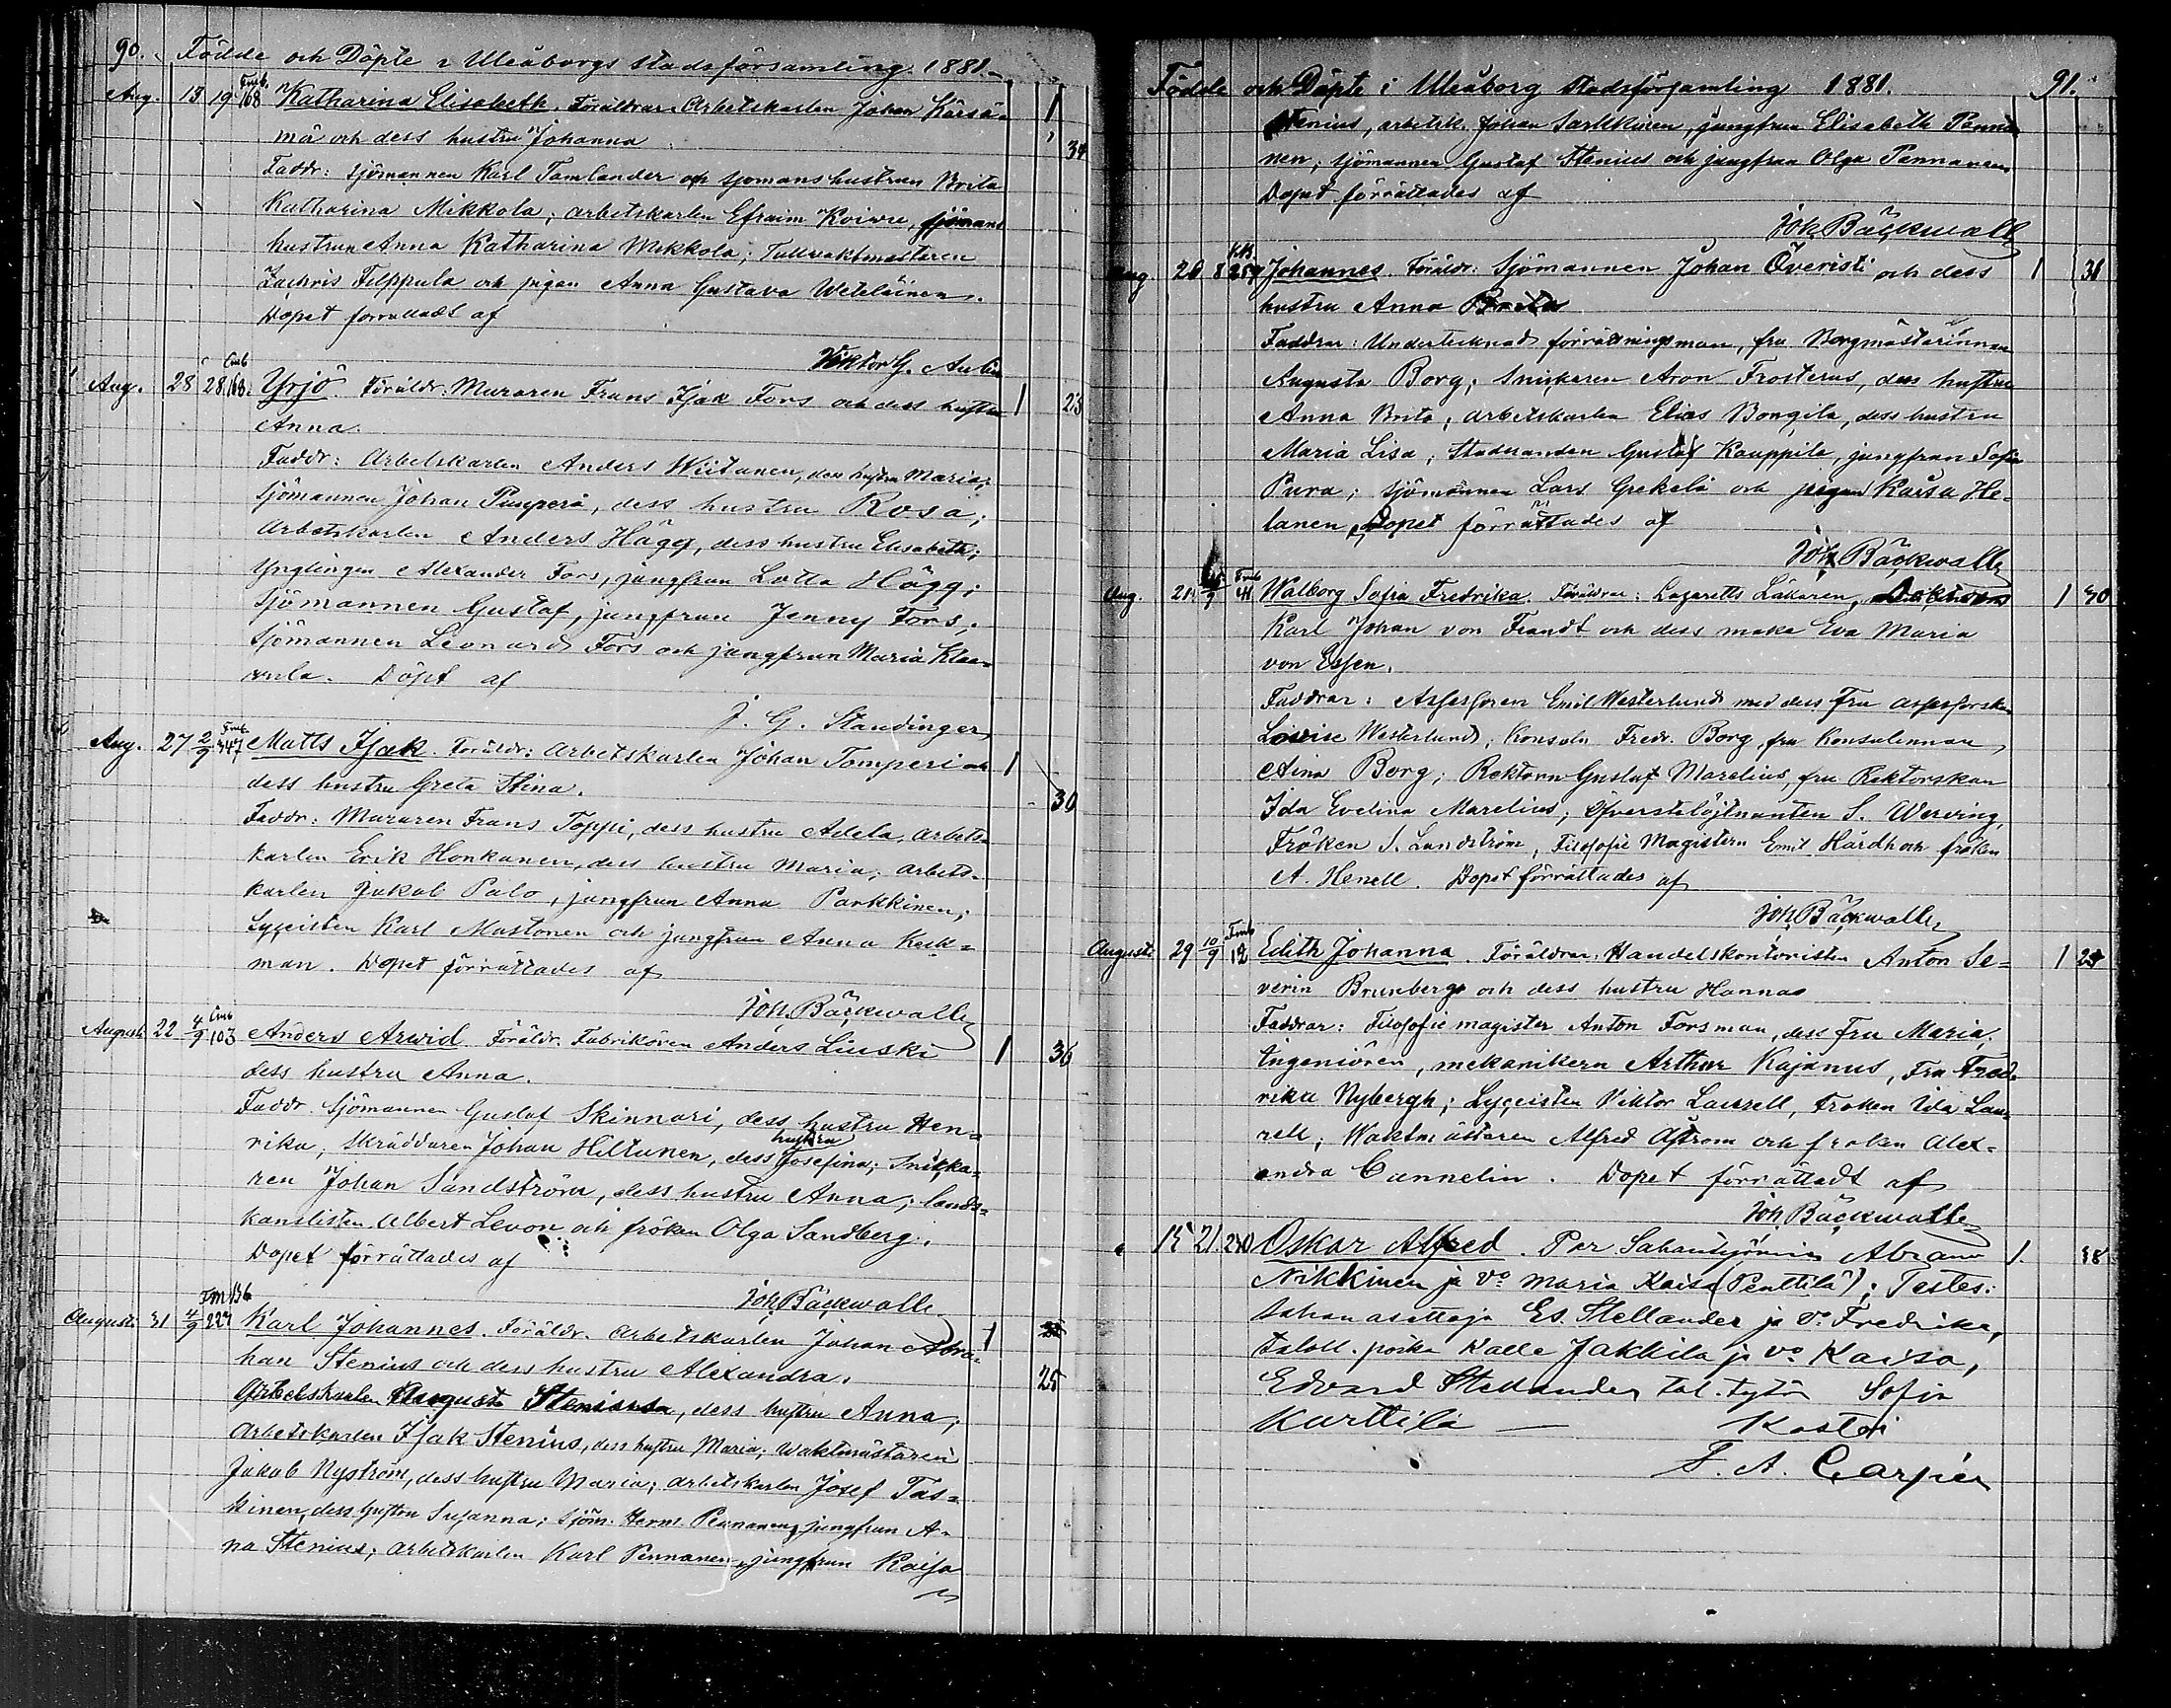 90. Födde och Döpte i Uleåborgs stadsförsamling. 1881.
Aug. 13 19 168 Katharina Elisabeth. Föräldrar: Arbetskarlen Johan Kärsä- 1
mä och dess hustru Johanna 34
Faddr: Sjömannen Karl Tamlander och sjömanshustrun Brita
Katharina Mikkola; arbetskarlen Efraim Koivu, sjömans
hustrun Anna Katharina Mikkola; Tullvaktmästaren
Zachris Filppula och pigan Anna Gustava Weteläinen.
Dopet förrättadt af
Viktor G.
Aug. 28 28 168. Yrjö. Föräldr: Muraren Frans Isak Fors och dess hustru 1 23
Anna.
Faddr: Arbetskarlen Anders Wiitanen, dess hustru Maria;
Sjömannen Johan Pumperi, dess hustru Rosa;
Arbetskarlen Anders Hägg, dess hustru Elisabeth;
Ynglingen Alexander Fors, jungfrun Lotta Hägg;
Sjömannen Gustaf, jungfrun Jenny Fors;
Sjömannen Leonard Fors och jungfrun Maria Klaa-
vula. Döpt af
J. G. Standinger
Aug. 27 2/9 347 Matts Isak. Föräldr: Arbetskarlen Johan Tomperi och 1
dess hustru Greta Stina. 30
Faddr: Muraren Frans Toppi, dess hustru Adela, arbets-
karlen Erik Honkanen, dess hustru Maria; arbets-
karlen Jakob Palo, jungfrun Anna Parkkinen;
Lyceisten Karl Mustonen och jungfrun Anna Keck-
man. Dopet förrättades af
Joh. Bäckwall
Augusti 22 4/9 103 Anders Arwid. Föräldr. Fabrikören Anders Liuski 1 36
dess hustru Anna.
Faddr. Sjömannen Gustaf Skinnari, dess hustru Hen-
rika; Skräddaren Johan Hiltunen, dess hustru Josefina; Snicka-
ren Johan Sandström, dess hustru Anna; lands-
kanslisten Albert Levon och fröken Olga Sandberg.
Dopet förrättades af
Joh. Bäckwall
Augusti 31 4/9 227 Karl Johannes. Föräldr. Arbetskarlen Johan Abra- 1
ham Stenius och dess hustru Alexandra. 25
Arbetskarlen August Stenius, dess hustru Anna;
Arbetskarlen Isak Stenius, dess hustru Maria; waktmästaren
Jakob Nyström, dess hustru Maria; arbetskarlen Josef Tas-
kinen, dess hustru Susanna; Sjöm. Herm. Pennanen, jungfrun A-
na Stenius; arbetskarlen Karl Pennanen, jungfrun Kaisa
Födde och Döpte i Uleåborg stadsförsamling 1881. 91.
Stenius, arbetsk. Johan Sarkkinen, jungfrun Elisabeth Penna-
nen; sjömannen Gustaf Stenius och jungfrun Olga Pennanen
Dopet förrättades af
Joh. Bäckwall
Aug. 20 8 259 Johannes. Föräldr: Sjömannen Johan Överisti och dess 1 31
hustru Anna Brita
Faddrar: Undertecknad förrättningsman, fru Borgmästarinnan
Augusta Borg; Snickaren Aron Frosterus, dess hustru
Anna Brita; arbetskarlen Elias Bongila, dess hustru
Maria Lisa; Gustaf Kauppila, jungfrun Sofia
Pura; sjömannen Lars Grekelä och pigan Kaisa He-
lanen. Dopet förrättades af
Joh. Bäckwall
Aug. 21 /9 41 Walborg Sofia Fredrika. Föräldrar: Lazaretts Läkaren, Doktorn 1 30
Karl Johan von Fieandt och dess maka Eva Maria
von Essen.
Faddrar: Assessoren Emil Westerlund med dess Fru assessorskan
Lovise Westerlund; Konsuln Fredr. Borg, fru Konsulinnan
Aina Borg; Rektorn Gustaf Marelius, fru Rektorskan
Ida Evelina Marelius; Öfverstelöjtnanten S. Wesving,
Fröken S. Lundström, Filosofie Magistern Emil Hårdh och fröken
A. Henell. Dopet förrättades af
Joh. Bäckwall
Augusti 29 10/9 12 Edith Johanna. Föräldrar: Handelskontoristen Anton Se- 1 25
verin Brunberg och dess hustru Hanna
Faddrar: Filosofie magister Anton Forsman, dess fru Maria;
Ingeniören, mekanikern Arthur Kajanus, Fru Fred-
rika Nybergh; Lyceisten Viktor Laurell, Fröken Ida Lau-
rell; Waktmästaren Alfred Åström och fröken Alex-
andra Cannelin. Dopet förrättadt af
Joh. Bäckwall
15 21 240 Oskar Alfred. Par Sahantyömies Abram 1. 38
Nikkinen ja vo Maria Kaisa (Penttilä); Testes:
Sahan asettaja Es. Stellander ja vo Fredrika,
taloll. poika Kalle Jakkila ja vo Kaisa,
Edvard Stellander tal. tytär Sofia
Karttila — Kastoi
F. A. Carpén